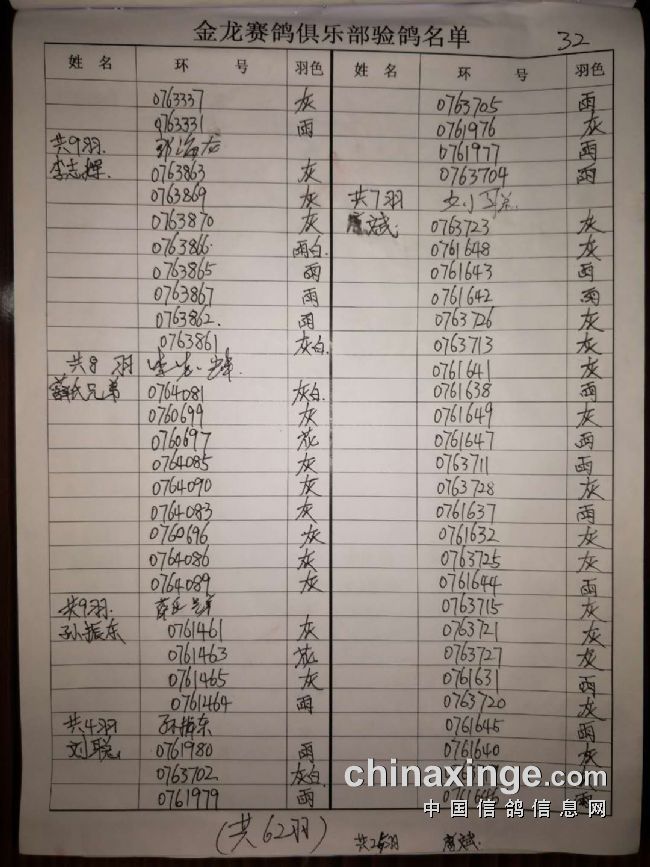 金龙赛鸽俱乐部验鸽名单
32
姓 名 环 号 羽色
0763337 灰
0763331 雨
共9羽.
李志辉. 0763863 灰
0763869 灰
0763870 灰
0763866 雨白.
0763865 雨
0763867 雨
0763862. 雨
0763861 灰白.
共8羽
薛氏兄弟 0764081 灰白
0760699 灰
0760697 花
0764085 灰
0764090 灰
0764083 灰
0760696 灰
0764086 灰
0764089 灰
共9羽.
孙振东 0761461 灰
0761463 花
0761465 灰
0761464 雨
共4羽 孙振东
刘聪 0761980 雨
0763702 灰白
0761979 雨
姓 名 环 号 羽色
0763705 雨
0761976 灰
0761977 雨
0763704 雨
共7羽
唐斌. 0763723 灰
0761648 灰
0761643 雨
0761642 雨
0763726 灰
0763713 灰
0761641 灰
0761638 雨
0761649 灰
0761647 雨
0763711 雨
0763728 灰
0761637 雨
0761632 灰
0763725 灰
0761644 雨
0763715 灰
0763721 灰
0763727 灰
0761631 雨
0763720 灰
0761645 雨
0761640 灰
雨
(共62羽)
共2羽 唐斌.
chinaxinge.com
中国信鸽信息网